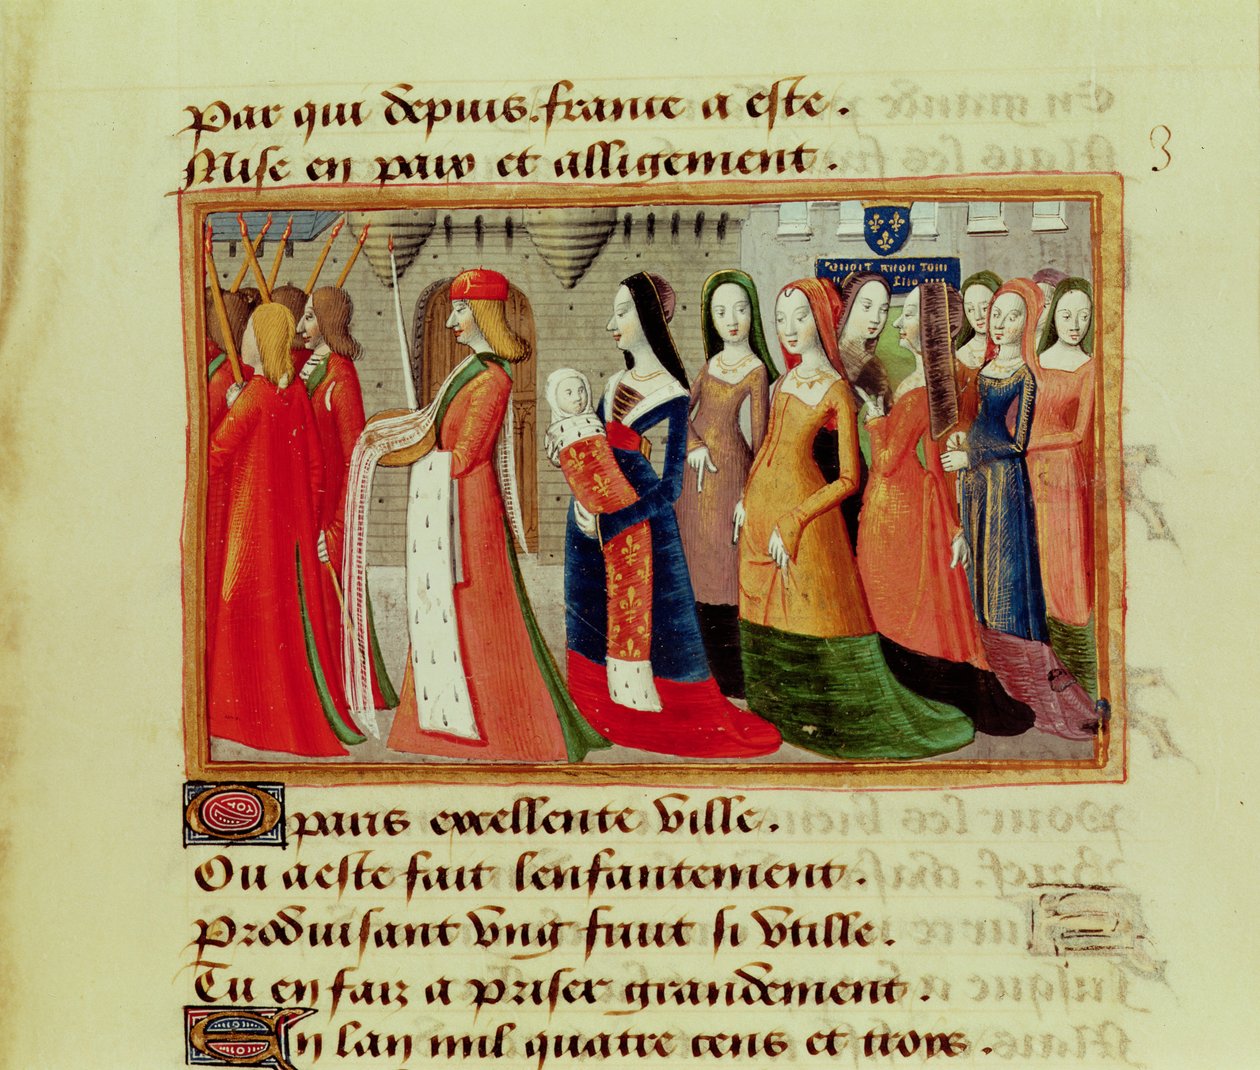 Par qui depuis france a este.
Mise en paix et alligement.
3
O paris exellente ville.
Ou a este fait lenfantement.
Produisant ung fruit si utille.
Tu en faiz a priser grandement.
En lan mil quatre cens et troys.